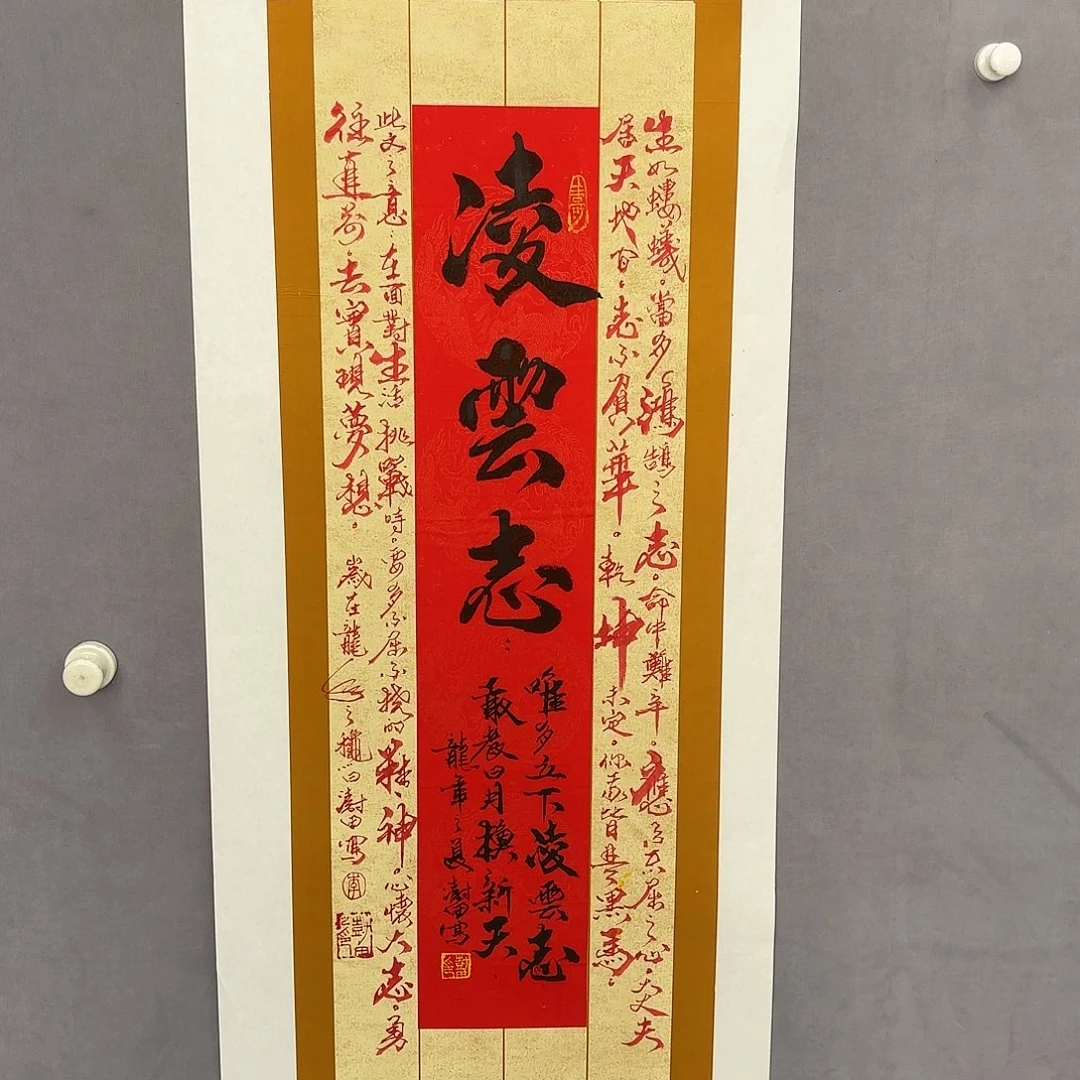 生如螻蟻。當多鴻鵠之志。命中難辛。應有不屈之心。丈夫
居天地間。志不負華。乾坤未定。你我皆是黑馬。
凌雲志
唯多立下凌雲志
敢教日月換新天
龍年之夏澍田寫
此文之意。在面對生活挑戰時。要多不屈不撓的精神。心懷大志。勇
往直前。去實現夢想。歲在龍年之機 澍田寫